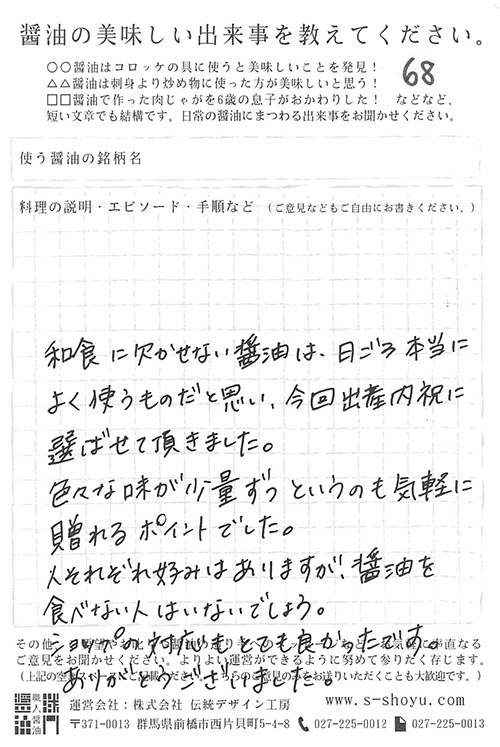 醤油の美味しい出来事を教えてください。
○○醤油はコロッケの具に使うと美味しいことを発見！
△△醤油は刺身より炒め物に使った方が美味しいと思う！
□□醤油で作った肉じゃがを6歳の息子がおかわりした！ などなど、
短い文章でも結構です。日常の醤油にまつわる出来事をお聞かせください。
68
使う醤油の銘柄名
料理の説明・エピソード・手順など （ご意見などもご自由にお書きください。）
和食に欠かせない醤油は、日ごろ本当に
よく使うものだと思い、今回出産内祝に
選ばせて頂きました。
色々な味が少量ずつというのも気軽に
贈れるポイントでした。
人それぞれ好みはありますが、醤油を
食べない人はいないでしょう。
ショップの対応もとても良かったです。
ありがとうございました。
その他、
ご意見をお聞かせください。よりよい運営ができるように努めて参りたく存じます。
のご意見のみをお送りいただくことも大歓迎です。）
職人醤油
運営会社：株式会社 伝統デザイン工房
www.s-shoyu.com
〒371-0013 群馬県前橋市西片貝町5-4-8
027-225-0012
027-225-0013